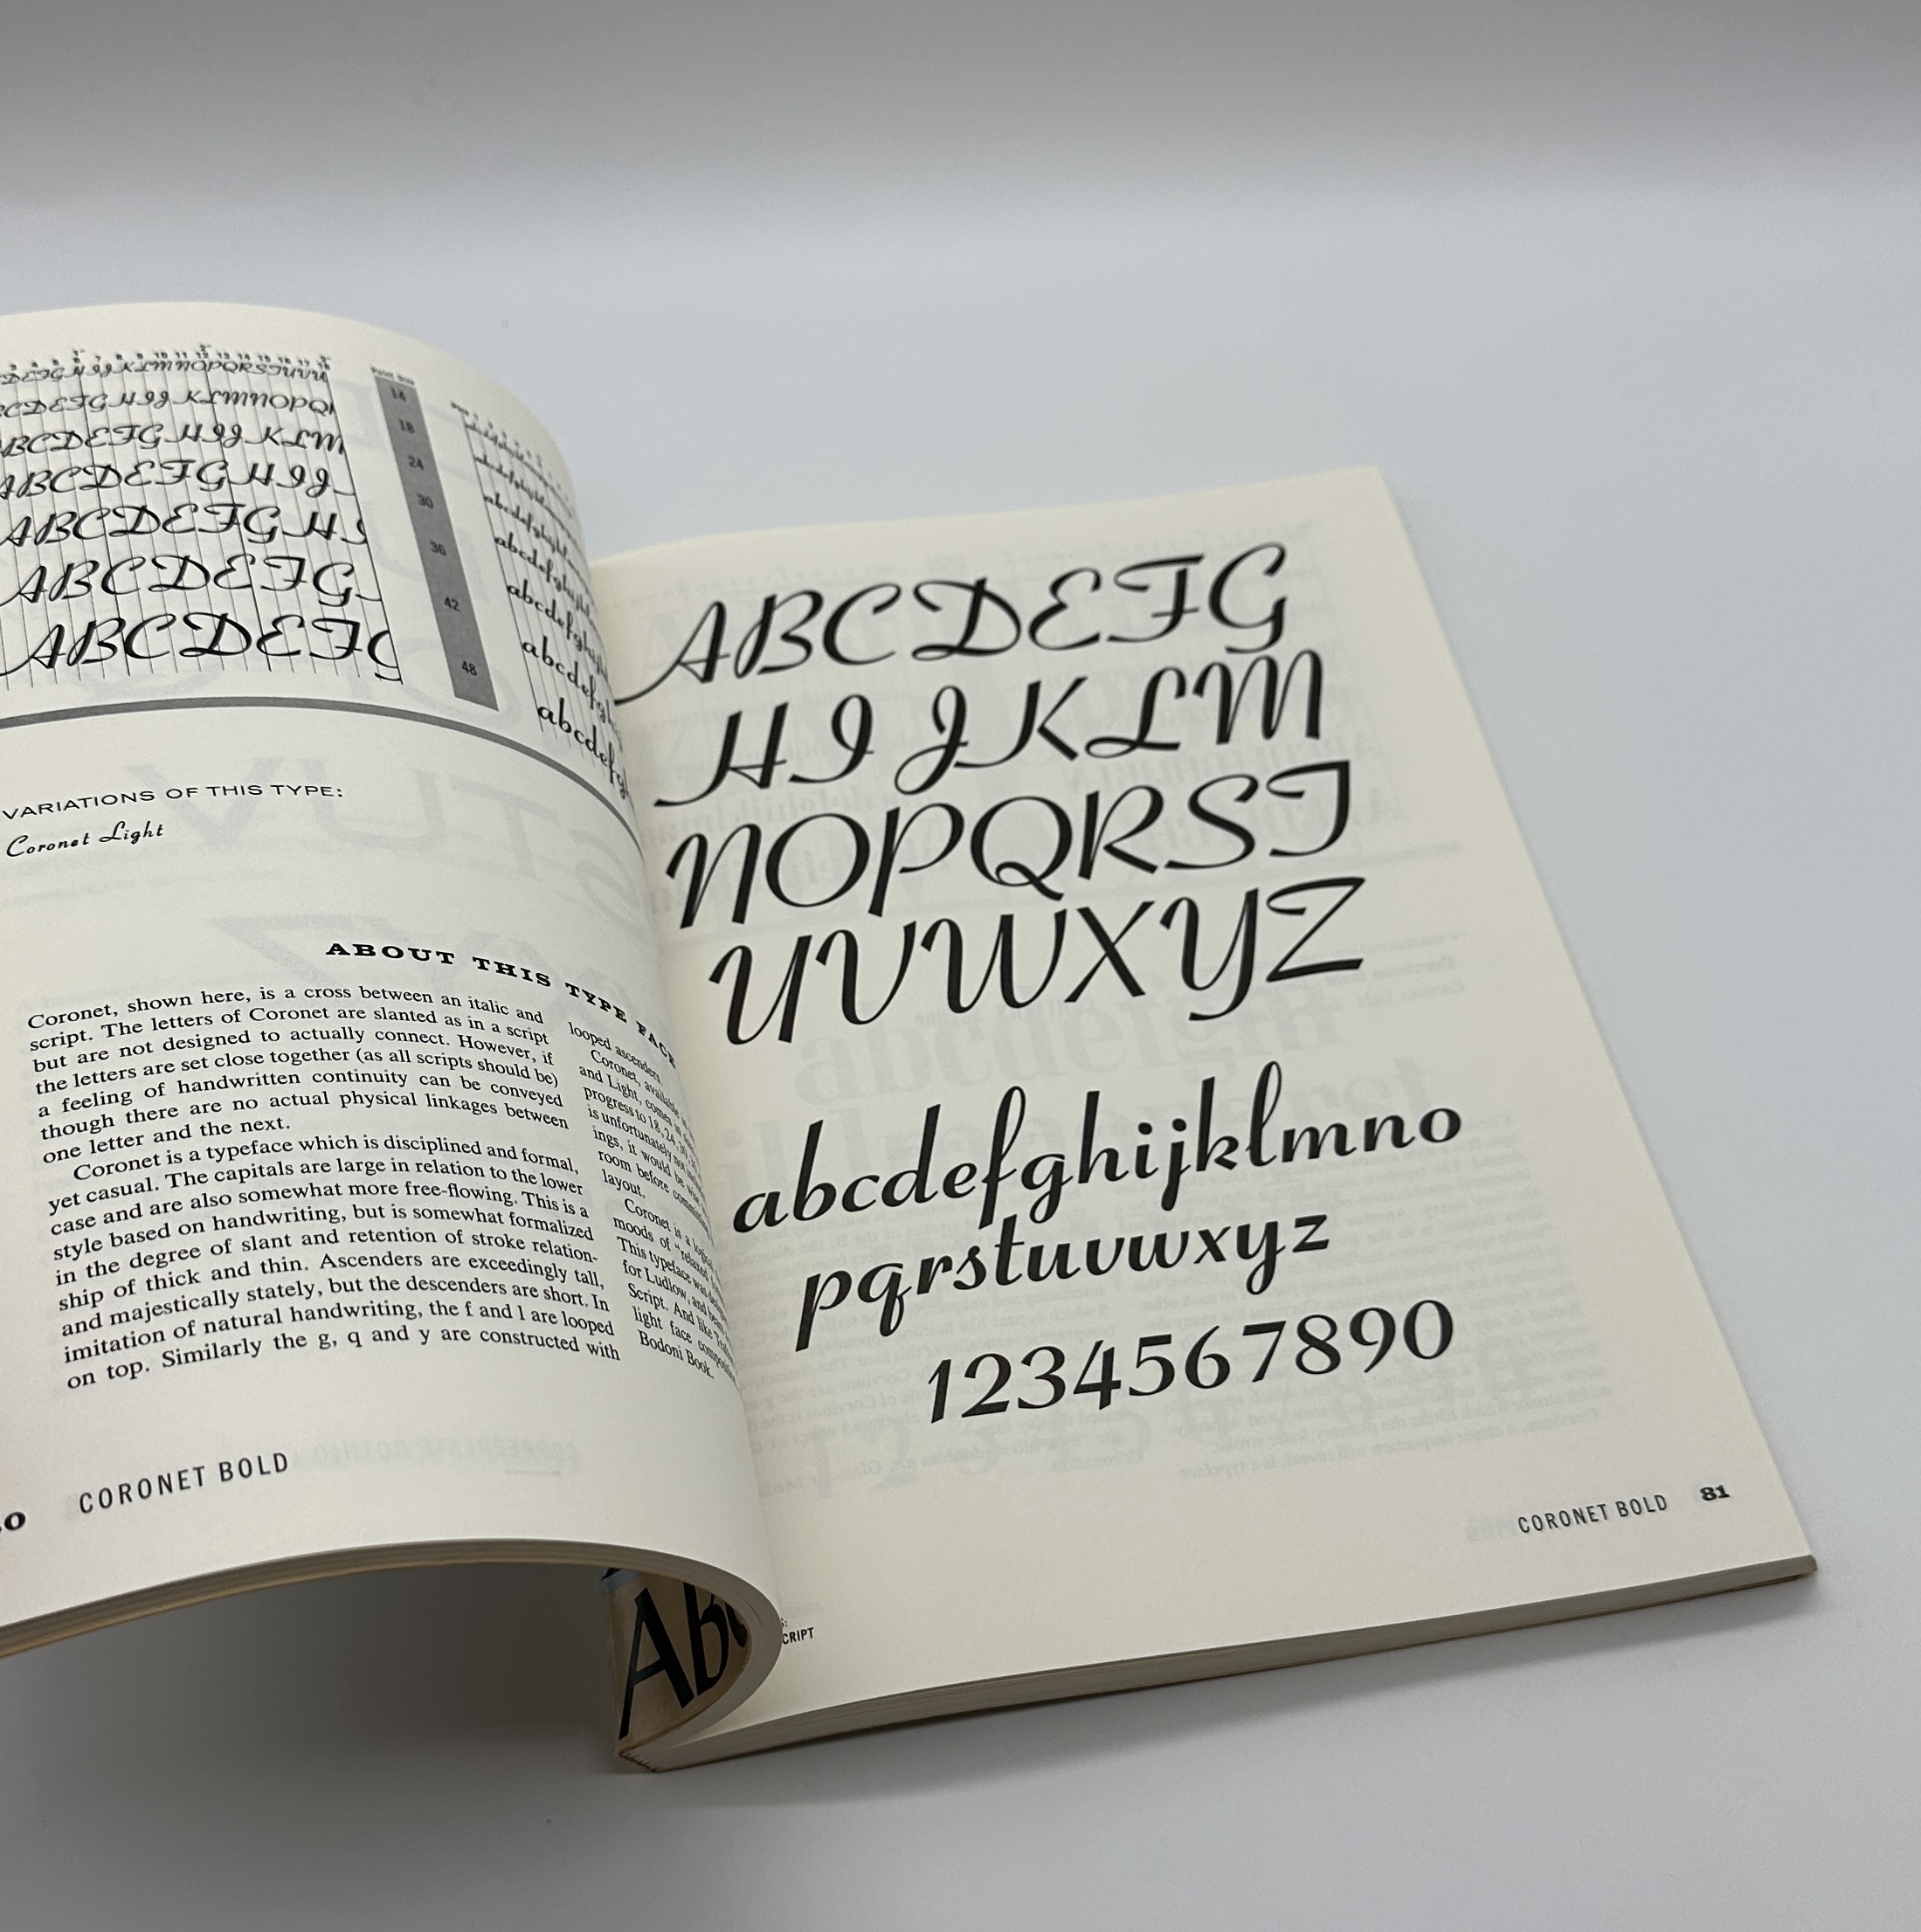 DEFG HIJ KLMNOPQRSTUVW
CDEFG HIJ KLMNOPQ
BCDEFG HIJ KLM
ABCDEFG HIJ
ABCDEFG H
ABCDEFG
ABCDEFG
Point Size
14
18
24
30
36
42
48
abcdefghijkl
abcdefghijkl
abcdefghijkl
abcdefghijkl
abcdefghijk
abcdefgh
abcdefg
VARIATIONS OF THIS TYPE:
Coronet Light
ABOUT THIS TYPE FACE
Coronet, shown here, is a cross between an italic and
script. The letters of Coronet are slanted as in a script
but are not designed to actually connect. However, if
the letters are set close together (as all scripts should be)
a feeling of handwritten continuity can be conveyed
though there are no actual physical linkages between
one letter and the next.
Coronet is a typeface which is disciplined and formal,
yet casual. The capitals are large in relation to the lower
case and are also somewhat more free-flowing. This is a
style based on handwriting, but is somewhat formalized
in the degree of slant and retention of stroke relation-
ship of thick and thin. Ascenders are exceedingly tall,
and majestically stately, but the descenders are short. In
imitation of natural handwriting, the f and l are looped
on top. Similarly the g, q and y are constructed with
looped ascenders.
Coronet, available
and Light, comes in
progress to 18, 24, 30,
is unfortunately not
ings, it would be wise
room before
layout.
Coronet is a
moods of "relaxed
This typeface was
for Ludlow, and
Script. And like
light face
Bodoni Book.
CORONET BOLD
ABCDEFG
HIJKLM
NOPQRST
UVWXYZ
abcdefghijklmno
pqrstuvwxyz
1234567890
CORONET BOLD 81
AB
CRIPT